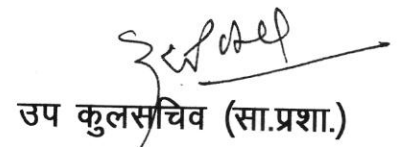 उप कुलसचिव (सा.प्रशा.)